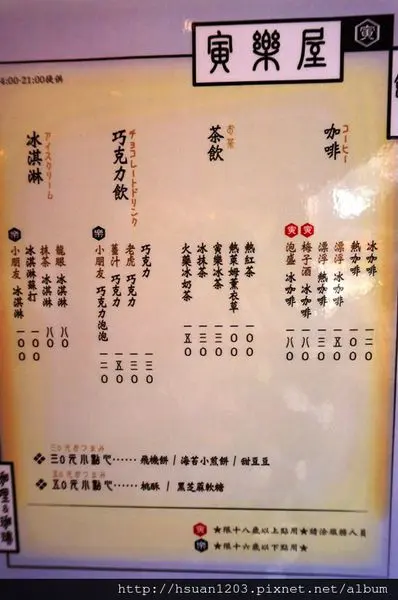 寅樂屋
寅
4:00-21:00提供
コーヒー
咖啡
冰咖啡 一二0
熱咖啡 一00
漂浮 冰咖啡
漂浮 熱咖啡
寅 梅子酒 冰咖啡 一八0
寅 泡盛 冰咖啡 一八0
お茶
茶飲
熱紅茶 一00
熱萊姆薰衣草 一00
寅樂冰茶 一三0
冰抹茶 一三0
火藥冰奶茶 一五0
チョコレートドリンク
巧克力飲
巧克力 一三0
老虎 巧克力 一三0
薑汁 巧克力 一五0
樂 小朋友 巧克力泡泡 一二0
アイスクリーム
冰淇淋
龍眼 冰淇淋 八0
抹茶 冰淇淋 八0
冰淇淋蘇打 一00
樂 小朋友 冰淇淋 一00
三0元おつまみ
三0元小點心⋯⋯飛機餅 / 海苔小煎餅 / 甜豆豆
五0元おつまみ
五0元小點心⋯⋯桃酥 / 黑芝麻軟糖
寅 ★限十八歲以上點用★請洽服務人員
樂 ★限十六歲以下點用★
咖哩&咖啡
http://hsuan1203.pixnet.net/album